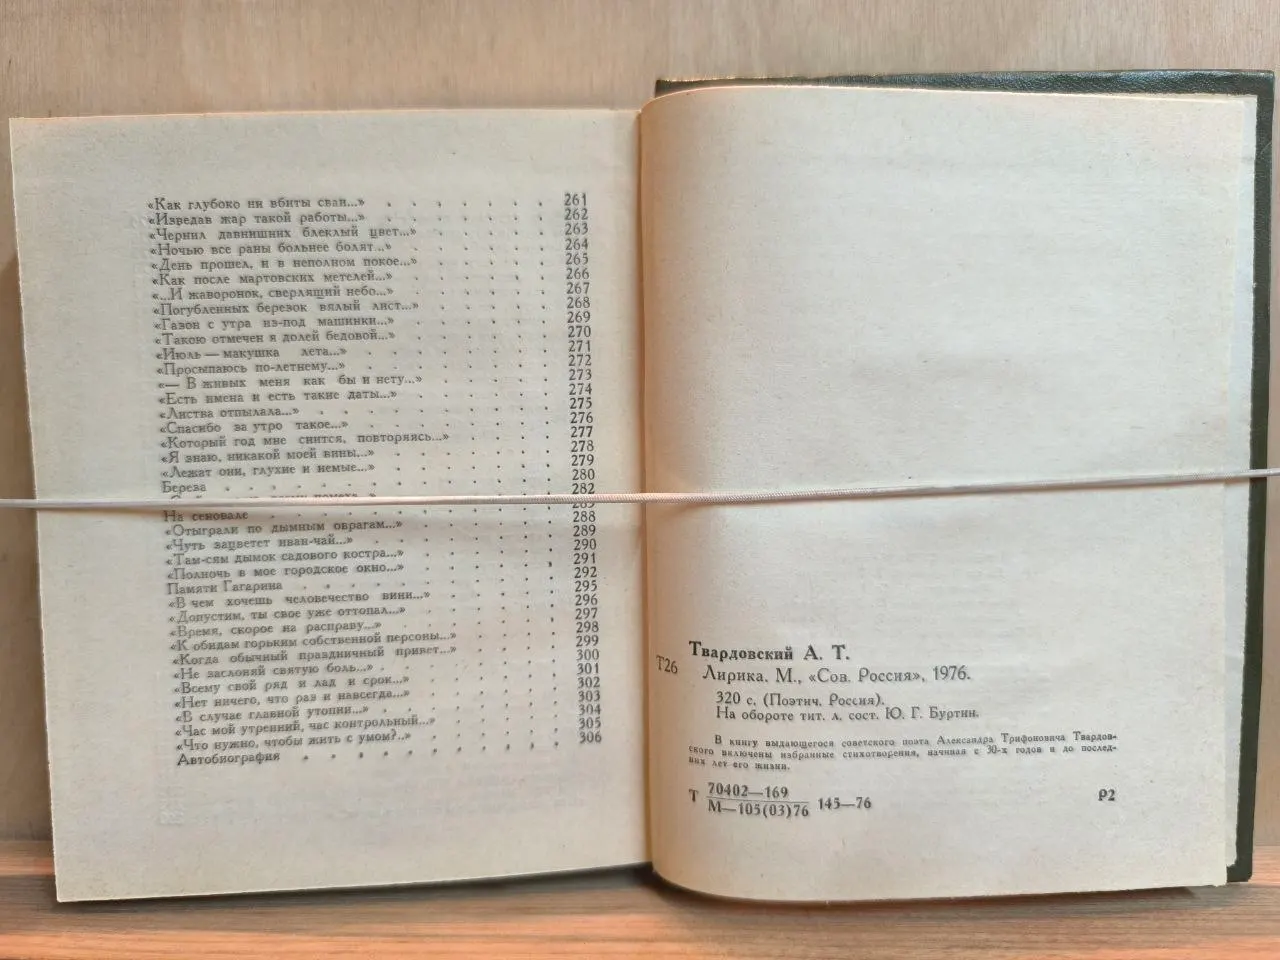 «Как глубоко ни вбиты сваи...» 261
«Изведав жар такой работы...» 262
«Чернил давнишних блеклый цвет...» 263
«Ночью все раны больнее болят...» 264
«День прошел, и в неполном покое...» 265
«Как после мартовских метелей...» 266
«...И жаворонок, сверлящий небо...» 267
«Погубленных березок вялый лист...» 268
«Газон с утра из-под машинки...» 269
«Такою отмечен я долей бедовой...» 270
«Июль — макушка лета...» 271
«Просыпаюсь по-летнему...» 272
«— В живых меня как бы и нету...» 273
«Есть имена и есть такие даты...» 274
«Листва отпылала...» 275
«Спасибо за утро такое...» 276
«Который год мне снится, повторяясь...» 277
«Я знаю, никакой моей вины...» 278
«Лежат они, глухие и немые...» 279
Береза 280
282
На сеновале
«Отыграли по дымным оврагам...» 288
«Чуть зацветет иван-чай...» 289
«Там-сям дымок садового костра...» 290
«Полночь в мое городское окно...» 291
Памяти Гагарина 292
«В чем хочешь человечество вини...» 295
«Допустим, ты свое уже оттопал...» 296
«Время, скорое на расправу...» 297
«К обидам горьким собственной персоны...» 298
«Когда обычный праздничный привет...» 299
«Не заслоняй святую боль...» 300
«Всему свой ряд и лад и срок...» 301
«Нет ничего, что раз и навсегда...» 302
«В случае главной утопии...» 303
«Час мой утренний, час контрольный...» 304
«Что нужно, чтобы жить с умом?..» 305
Автобиография 306
Твардовский А. Т.
Т26 Лирика. М., «Сов. Россия», 1976.
320 с. (Поэтич. Россия).
На обороте тит. л. сост. Ю. Г. Буртин.
В книгу выдающегося советского поэта Александра Трифоновича Твардов-
ского включены избранные стихотворения, начиная с 30-х годов и до послед-
них лет его жизни.
Т 70402—169 145—76 Р2
М—105(03)76